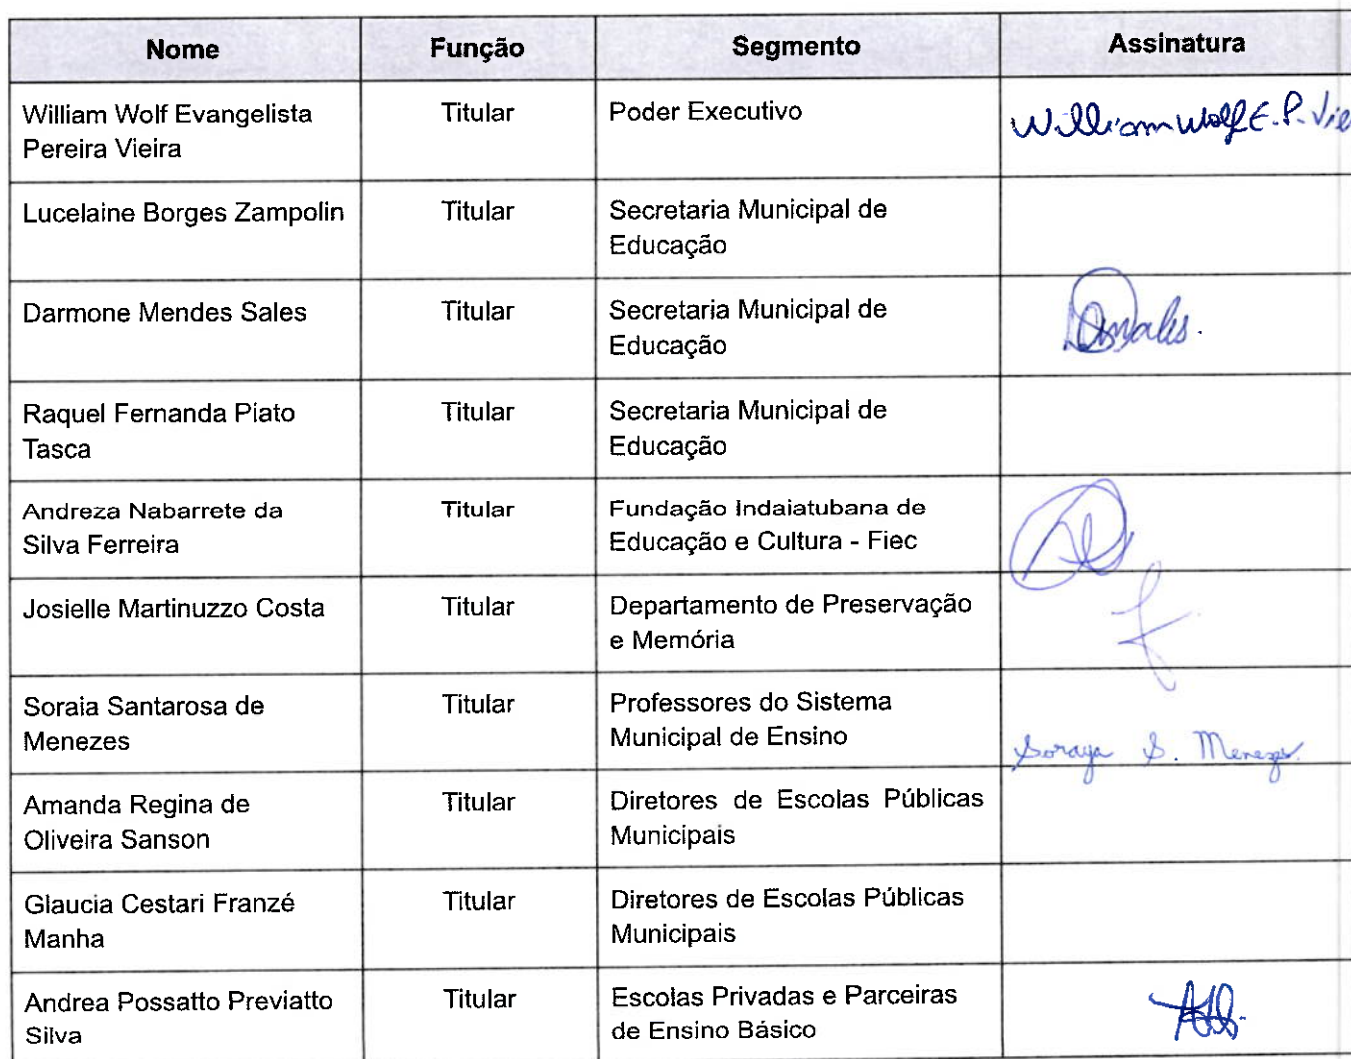 Nome Função Segmento Assinatura
William Wolf Evangelista Titular Poder Executivo William Wolf E. P. Vie
Pereira Vieira
Lucelaine Borges Zampolin Titular Secretaria Municipal de
Educação
Darmone Mendes Sales Titular Secretaria Municipal de
Educação
Raquel Fernanda Piato Titular Secretaria Municipal de
Tasca Educação
Andreza Nabarrete da Titular Fundação Indaiatubana de
Silva Ferreira Educação e Cultura - Fiec
Josielle Martinuzzo Costa Titular Departamento de Preservação
e Memória
Soraia Santarosa de Titular Professores do Sistema
Menezes Municipal de Ensino Soraya S. Menezes
Amanda Regina de Titular Diretores de Escolas Públicas
Oliveira Sanson Municipais
Glaucia Cestari Franzé Titular Diretores de Escolas Públicas
Manha Municipais
Andrea Possatto Previatto Titular Escolas Privadas e Parceiras
Silva de Ensino Básico